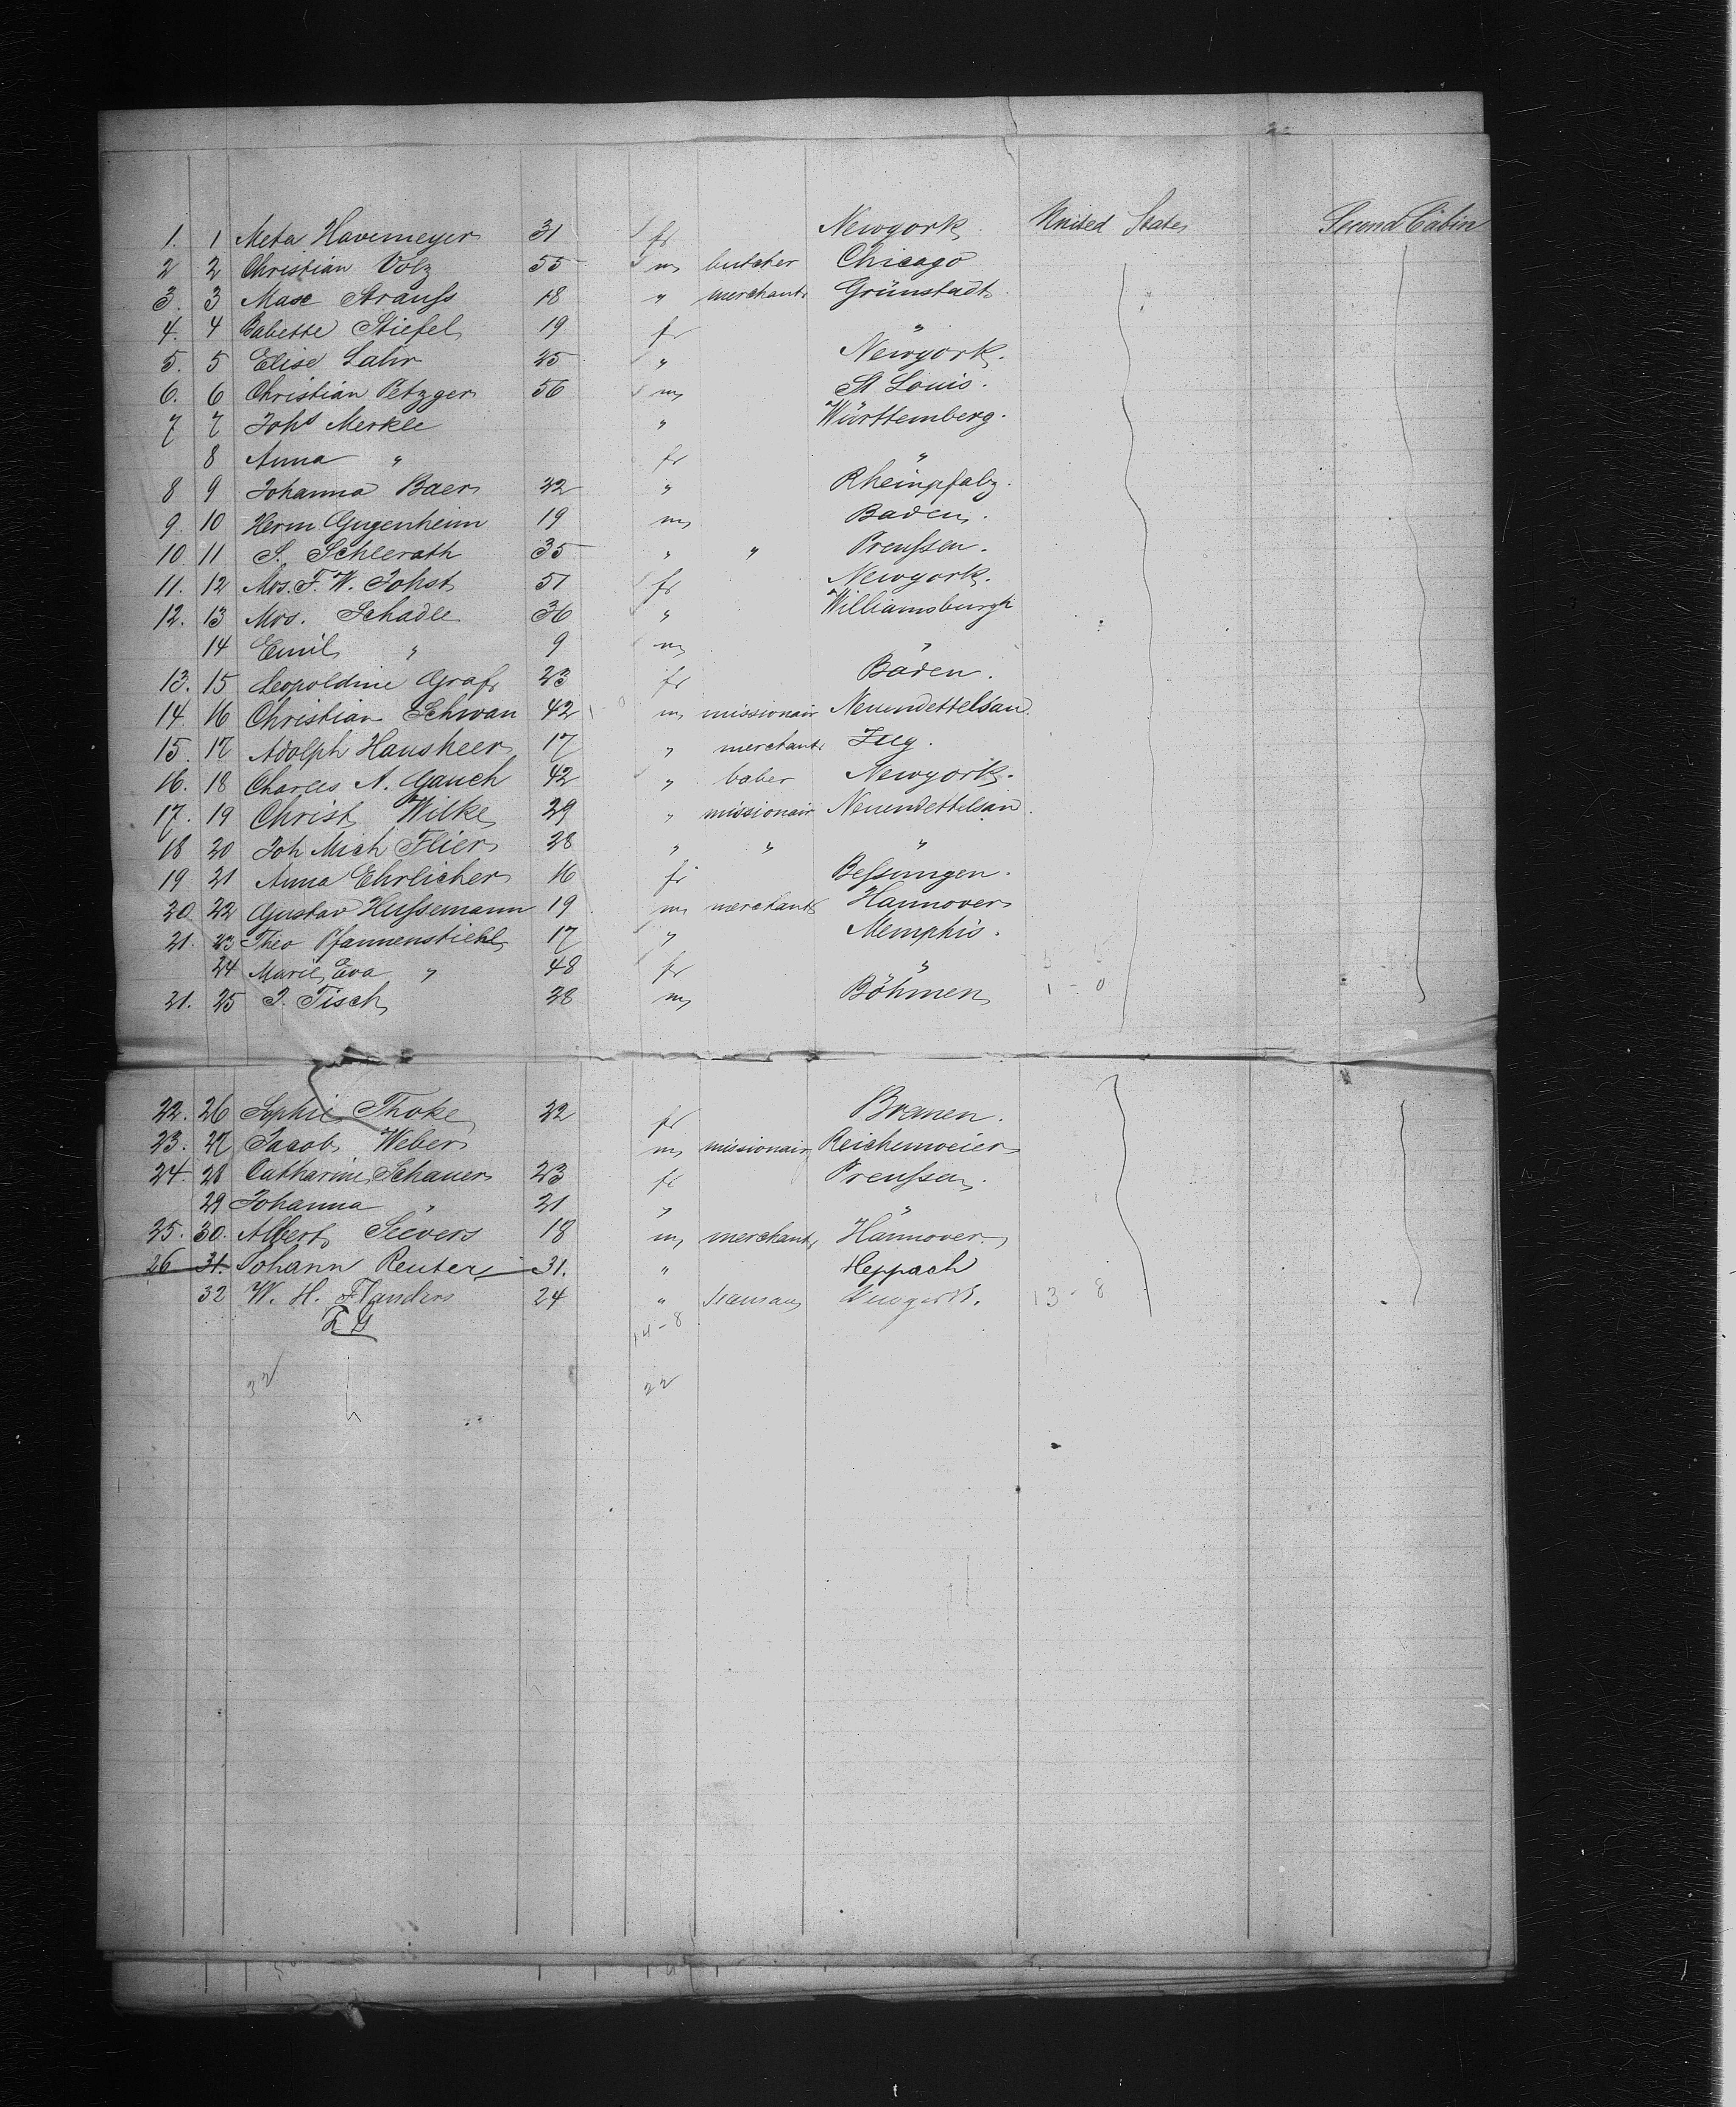 1. 1 Meta Havemeyer 31 fr Newyork United States Second Cabin
2 2 Christian Volz 55 m butcher Chicago
3. 3 Max Strauss 18 " merchant Grünstadt
4. 4 Babette Stiefel 19 fr "
5. 5 Elise Lahr 25 " Newyork.
6. 6 Christian Petzger 56 m St Louis.
7 7 Johs Merkle " Württemberg.
8 Anna " fr "
8 9 Johanna Baer 22 " Rheinpfalz.
9. 10 Herm Gugenheim 19 m Baden.
10 11 S. Schlerath 35 " " Preussen.
11. 12 Mrs. F. W. Johst 51 fr Newyork.
12. 13 Mrs. Schadle 36 " Williamsburgh
14 Emil " 9 m "
13. 15 Leopoldine Graf 23 fr Baden.
14. 16 Christian Schwan 42 1 - 0 m missionair Neuendettelsau.
15. 17 Adolph Hausheer 17 " merchant Zug.
16. 18 Charles A. Gauch 42 " baber Newyork.
17. 19 Christ Wilke 29 " missionair Neuendettelsau.
18 20 Joh Mich Flier 28 " " "
19 21 Anna Ehrlicher 16 fr Bessungen.
20 22 Gustav Hussemann 19 m merchant Hannover
21. 23 Theo Pfannenstiehl 17 " Memphis.
24 Marie Eva " 48 fr "
21. 25 J. Tisch 28 m Böhmen 1 - 0
22. 26 Sophie Thoke 22 fr Bremen.
23. 27 Jacob Weber m missionair Reichenweier
24. 28 Catharine Schauer 23 fr Preussen.
29 Johanna " 21 " "
25. 30. Albert Sievers 18 m merchant Hannover.
26 31. Johann Reuter 31. " Heppach
32 W. H. Flanders 24 " Newyork. 13 - 8
14 - 8
32 22